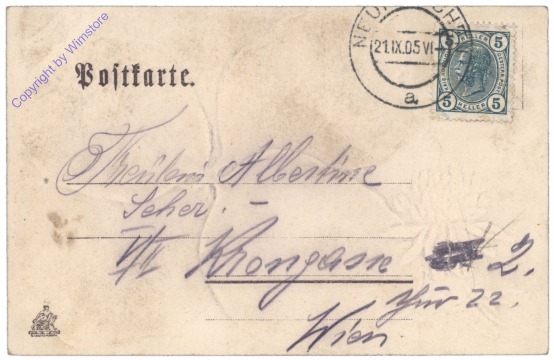 Copyright by Wimstore
Postkarte.
21.IX.05 VI
a
5 5
5 HELLER 5
Fräulein Albertine
Seher. –
V/I Krongasse 2.
Thür 22.
Wien